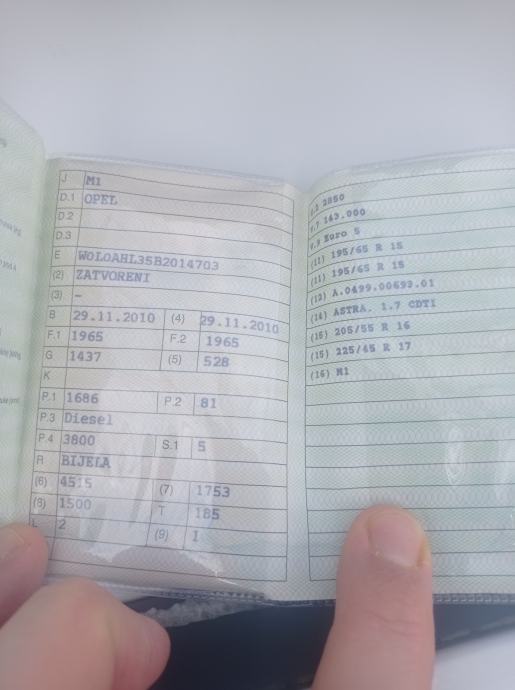 J M1
D.1 OPEL
D.2
D.3
E W0L0AHL35B2014703
(2) ZATVORENI
(3) -
B 29.11.2010 (4) 29.11.2010
F.1 1965 F.2 1965
G 1437 (5) 528
K
P.1 1686 P.2 81
P.3 Diesel
P.4 3800 S.1 5
R BIJELA
(6) 4515 (7) 1753
(8) 1500 T 185
L 2 (9) 1
2850
V.7 143.000
V.9 Euro 5
(11) 195/65 R 15
(11) 195/65 R 15
(12) A.0499.00693.01
(14) ASTRA. 1.7 CDTI
(15) 205/55 R 16
(15) 225/45 R 17
(16) M1